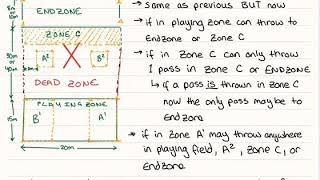 ENDZONE
ZONE C
A²
B²
DEAD ZONE
PLAYING ZONE
B'
A'
20m
15m
→ same as previous BUT now
→ if in playing zone can throw to
Endzone or Zone C
→ if in Zone C can only throw
1 pass in Zone C or ENDZONE
↳ if a pass is thrown in Zone C
now the only pass may be to
Endzone
* if in Zone A' may throw anywhere
in playing field, A², Zone C, or
Endzone